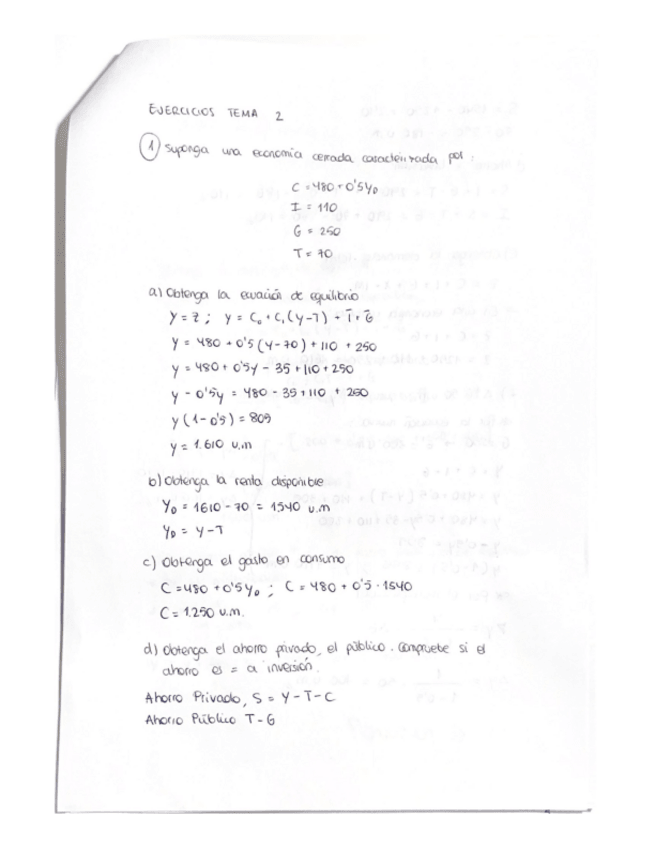 EJERCICIOS TEMA 2
1 Suponga una economía cerrada caracterizada por:
C = 480 + 0'5 YD
I = 110
G = 250
T = 70
a) Obtenga la ecuación de equilibrio
Y = Z ; Y = C0 + C1 (Y-T) + Ī + Ḡ
Y = 480 + 0'5 (Y - 70) + 110 + 250
Y = 480 + 0'5Y - 35 + 110 + 250
Y - 0'5Y = 480 - 35 + 110 + 250
Y (1 - 0'5) = 805
Y = 1.610 u.m
b) Obtenga la renta disponible
YD = 1610 - 70 = 1540 u.m
YD = Y - T
c) Obtenga el gasto en consumo
C = 480 + 0'5 YD ; C = 480 + 0'5 · 1540
C = 1.250 u.m.
d) Obtenga el ahorro privado, el público. Compruebe si el
ahorro es = a inversión.
Ahorro Privado, S = Y - T - C
Ahorro Público T - G